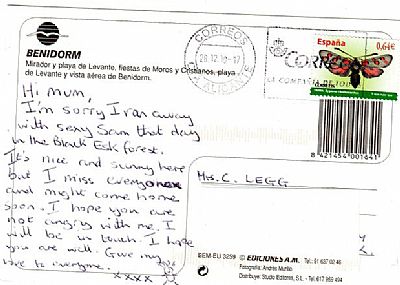 BENIDORM
Mirador y playa de Levante, fiestas de Moros y Cristianos, playa
de Levante y vista aérea de Benidorm.
Hi Mum,
I'm sorry I ran away
with sexy Sam that day
in the Black Esk forest.
It's nice and sunny here
but I miss everyone
and might come home
soon. I hope you are
not angry with me. I
will be in touch. I hope
you are well. Give my
love to everyone.
xxxx
CORREOS
28.12.10-17
ALICANTE
CORREOS
España
0,64€
8 421454 001641
Mrs. C. LEGG
BEM EU 3259
© EDICIONES A.M.
Fotografía: Andrés Murillo